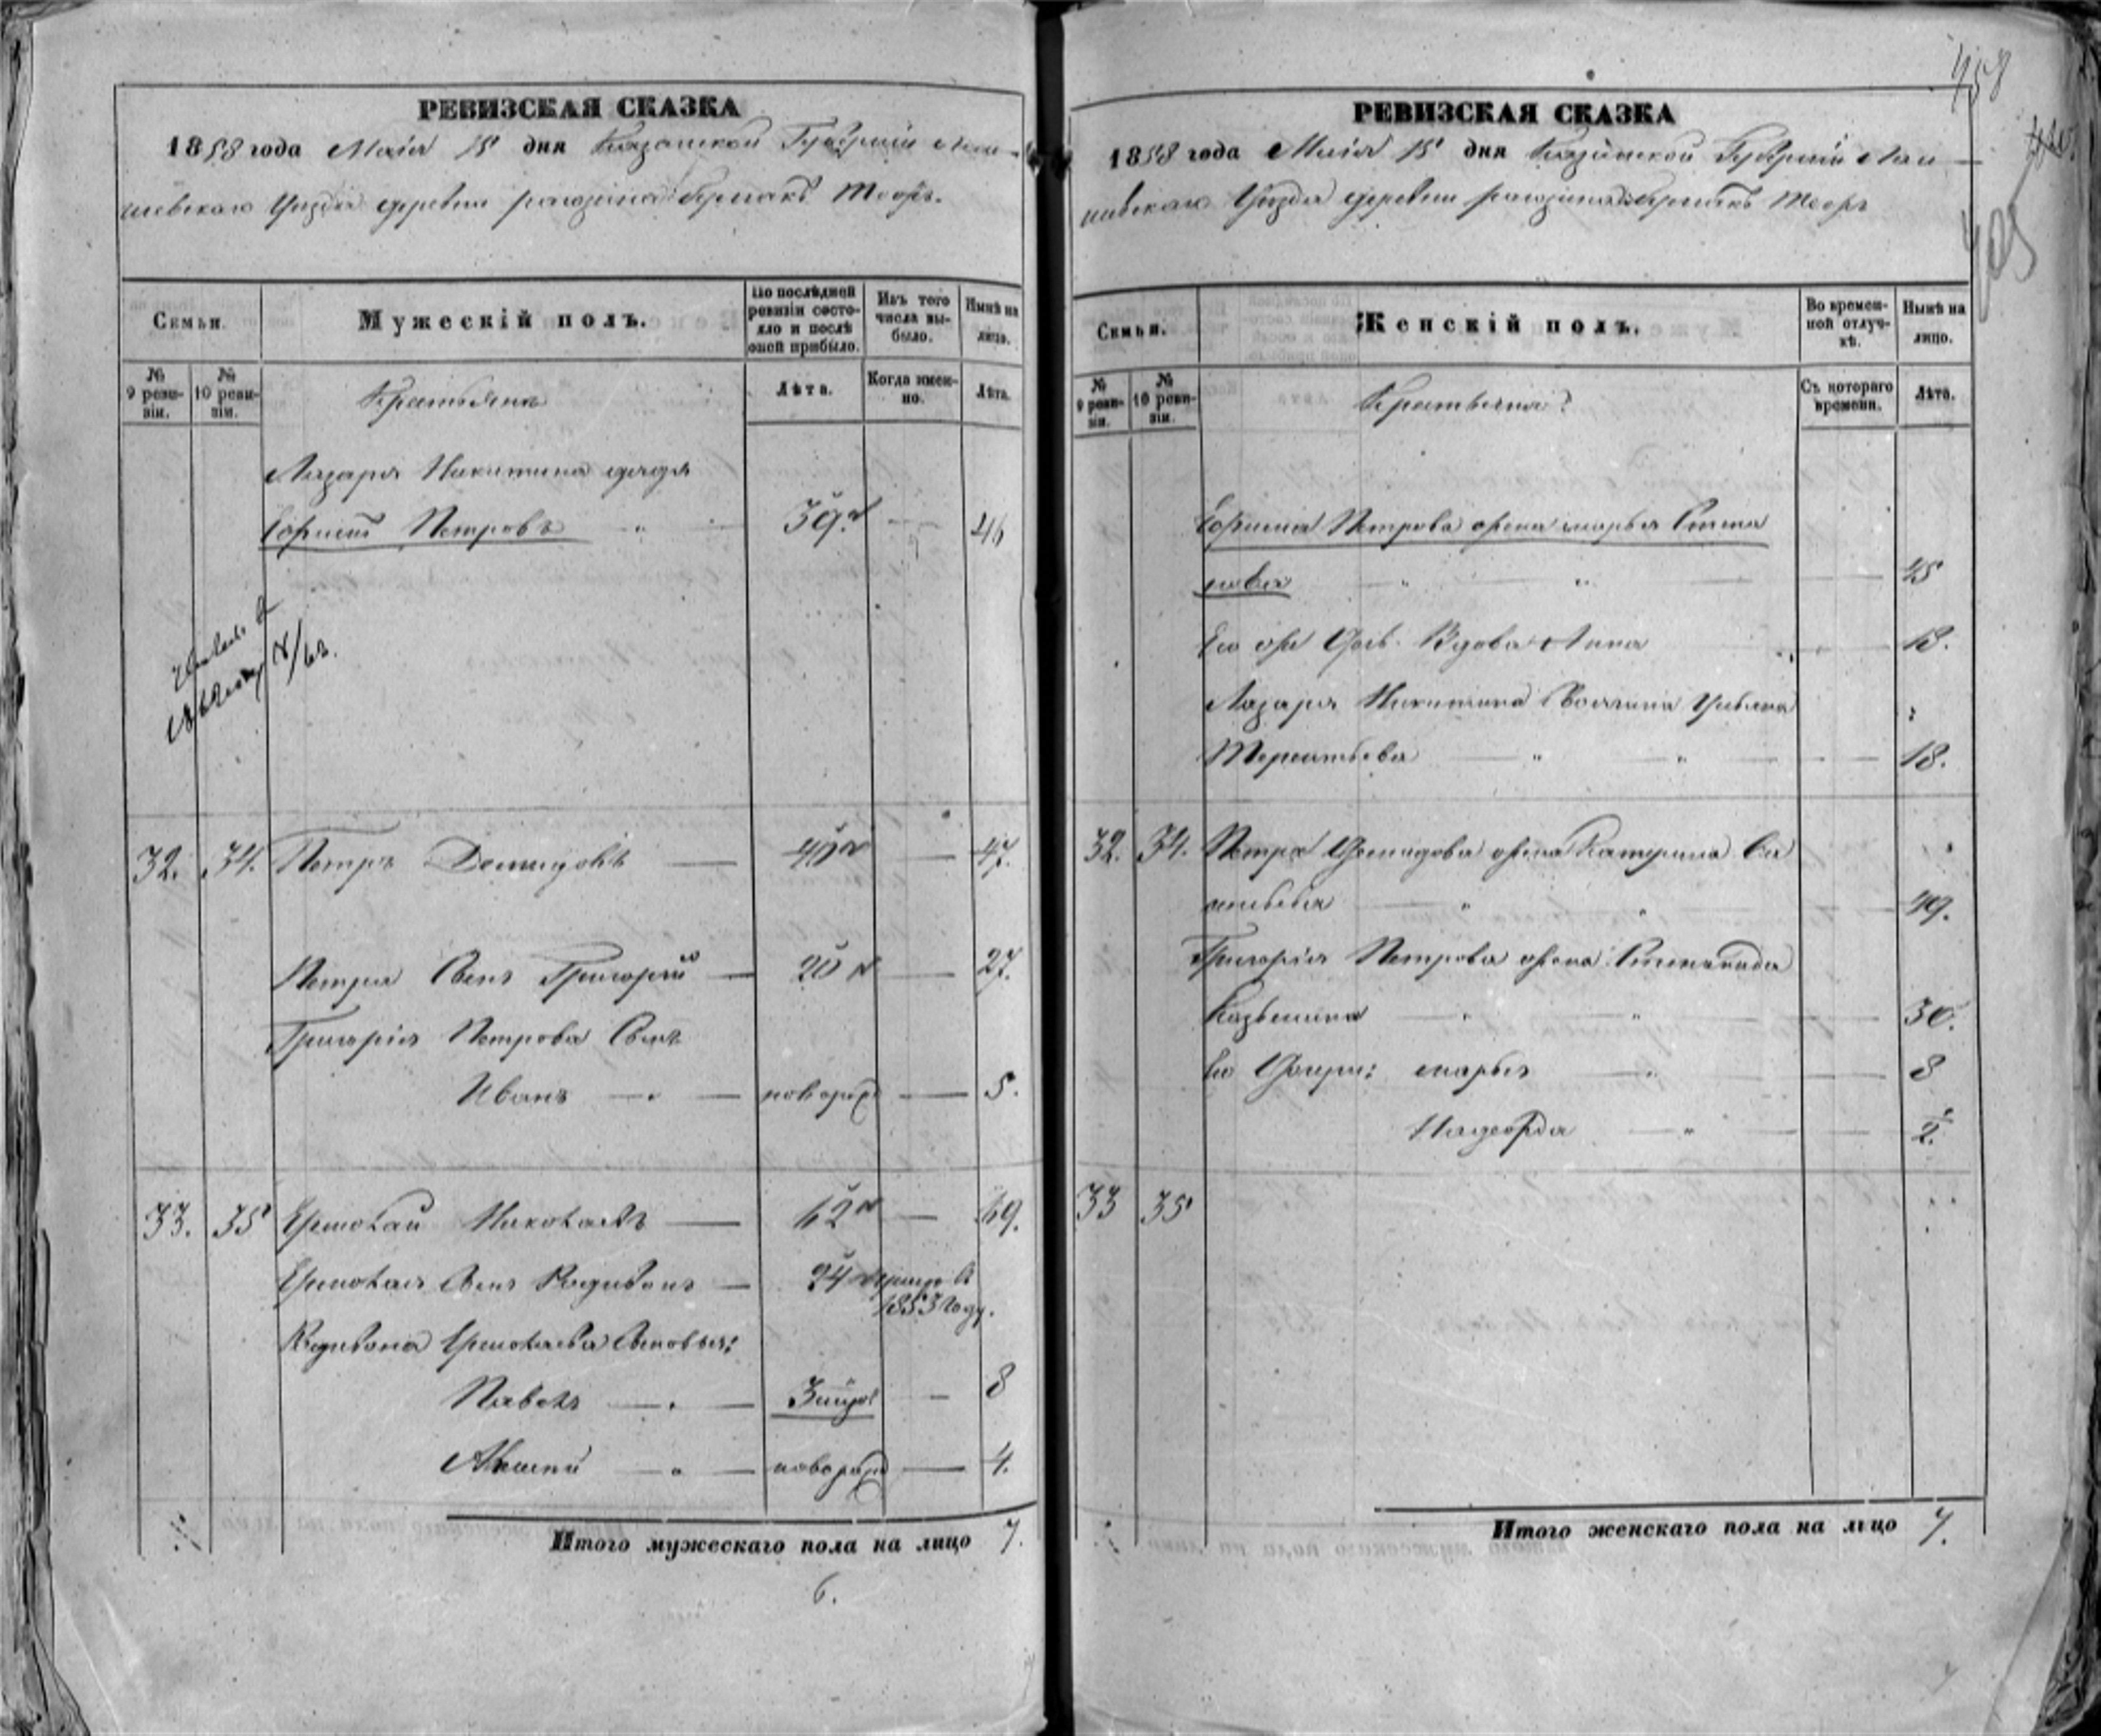 РЕВИЗСКАЯ СКАЗКА
1858 года Маія 15 дня Казанской Губерніи Лаи-
шевскаго Уѣзда деревни
Семьи.
Мужескій полъ.
По послѣдней ревизіи состояло и послѣ оной прибыло.
Изъ того числа выбыло.
Нынѣ на лицо.
№ 9 ревизіи.
№ 10 ревизіи.
Лѣта.
Когда именно.
Лѣта.
Лазаря Никитина дядя
Ефимъ Петровъ 39 46
32. 34. Петръ Демидовъ 40 47.
Петра Сынъ Григорій 20 27.
Григорія Петрова Сынъ
Иванъ новорож 5.
33. 35 Ермолай Николаевъ 62 69.
Ермолая Сынъ Родивонъ 24 умре въ
1853 году.
Родивона Ермолаева Сыновья:
Павелъ 8
Алексѣй новорож 4.
Итого мужескаго пола на лицо 7.
6.
458
РЕВИЗСКАЯ СКАЗКА
1858 года Маія 15 дня Казанской Губерніи Лаи
шевскаго Уѣзда деревни
Семьи.
Женскій полъ.
Во временной отлучкѣ.
Нынѣ на лицо.
№ 9 ревизіи.
№ 10 ревизіи.
Съ котораго времени.
Лѣта.
Ефима Петрова жена марья Степа
нова 45
Его Вдова Анна 18.
Лазаря Никитина Ульяна
Терентьева 18.
32. 34. Петра Демидова жена Катерина Са
вельева 49.
Григорія Петрова жена Степанида
Козьмина 30.
Его Дочери: марья 8
Надежда 2.
33 35
Итого женскаго пола на лицо 7.